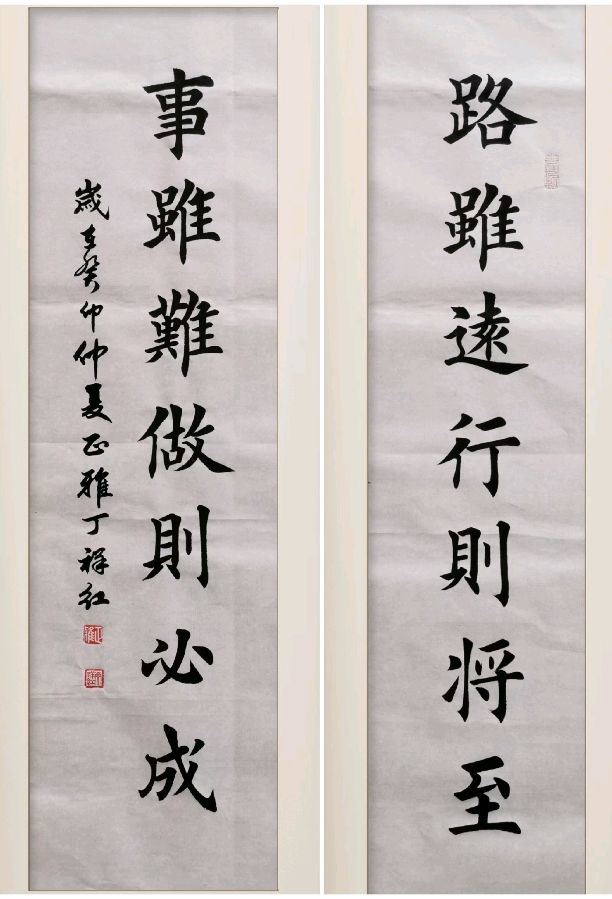 路雖遠行則将至
事雖難做則必成
歲在癸卯仲夏正雅丁祥红